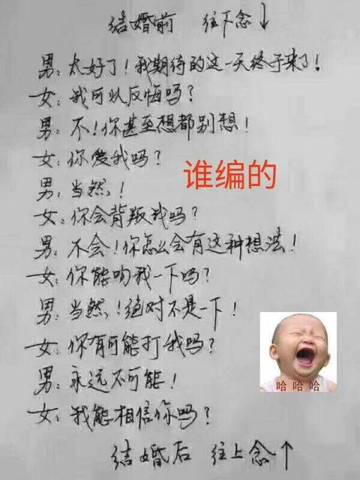 结婚前 往下念↓
男：太好了！我期待的这一天终于来了！
女：我可以反悔吗？
男：不！你甚至想都别想！
女：你爱我吗？
男：当然！
谁编的
女：你会背叛我吗？
男：不会！你怎么会有这种想法！
女：你能吻我一下吗？
男：当然！绝对不是一下！
女：你有可能打我吗？
男：永远不可能！
哈哈哈
女：我能相信你吗？
结婚后 往上念↑